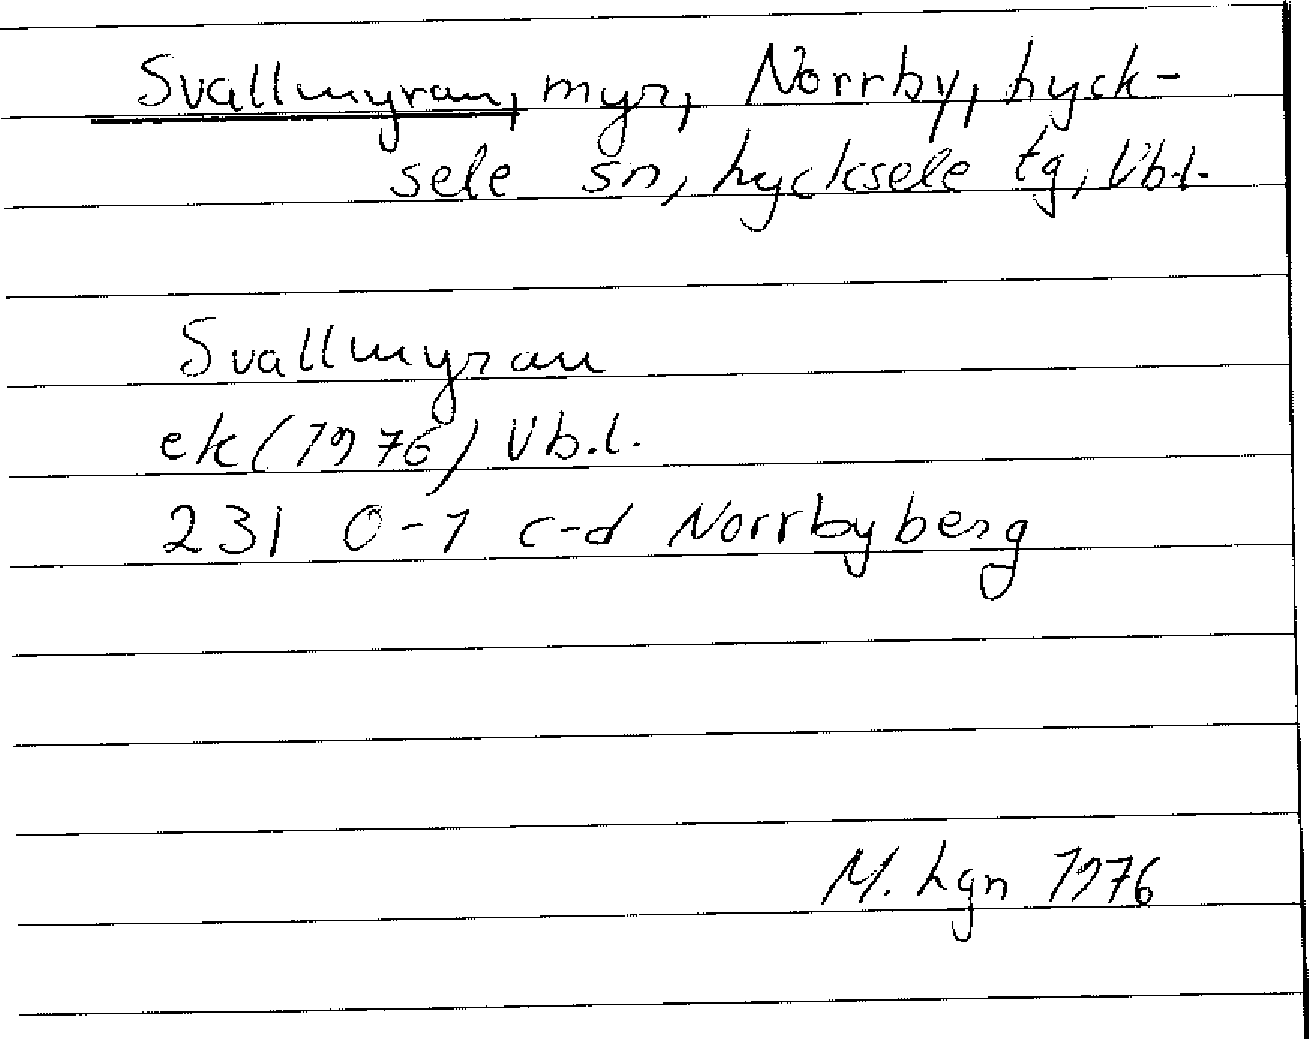 Svallmyran, myr, Norrby, Lyck-
sele sn, Lycksele tg, Vb.l.
Svallmyran
ek (1976) Vb.l.
231 0-1 c-d Norrbyberg
M. Lgn 1976